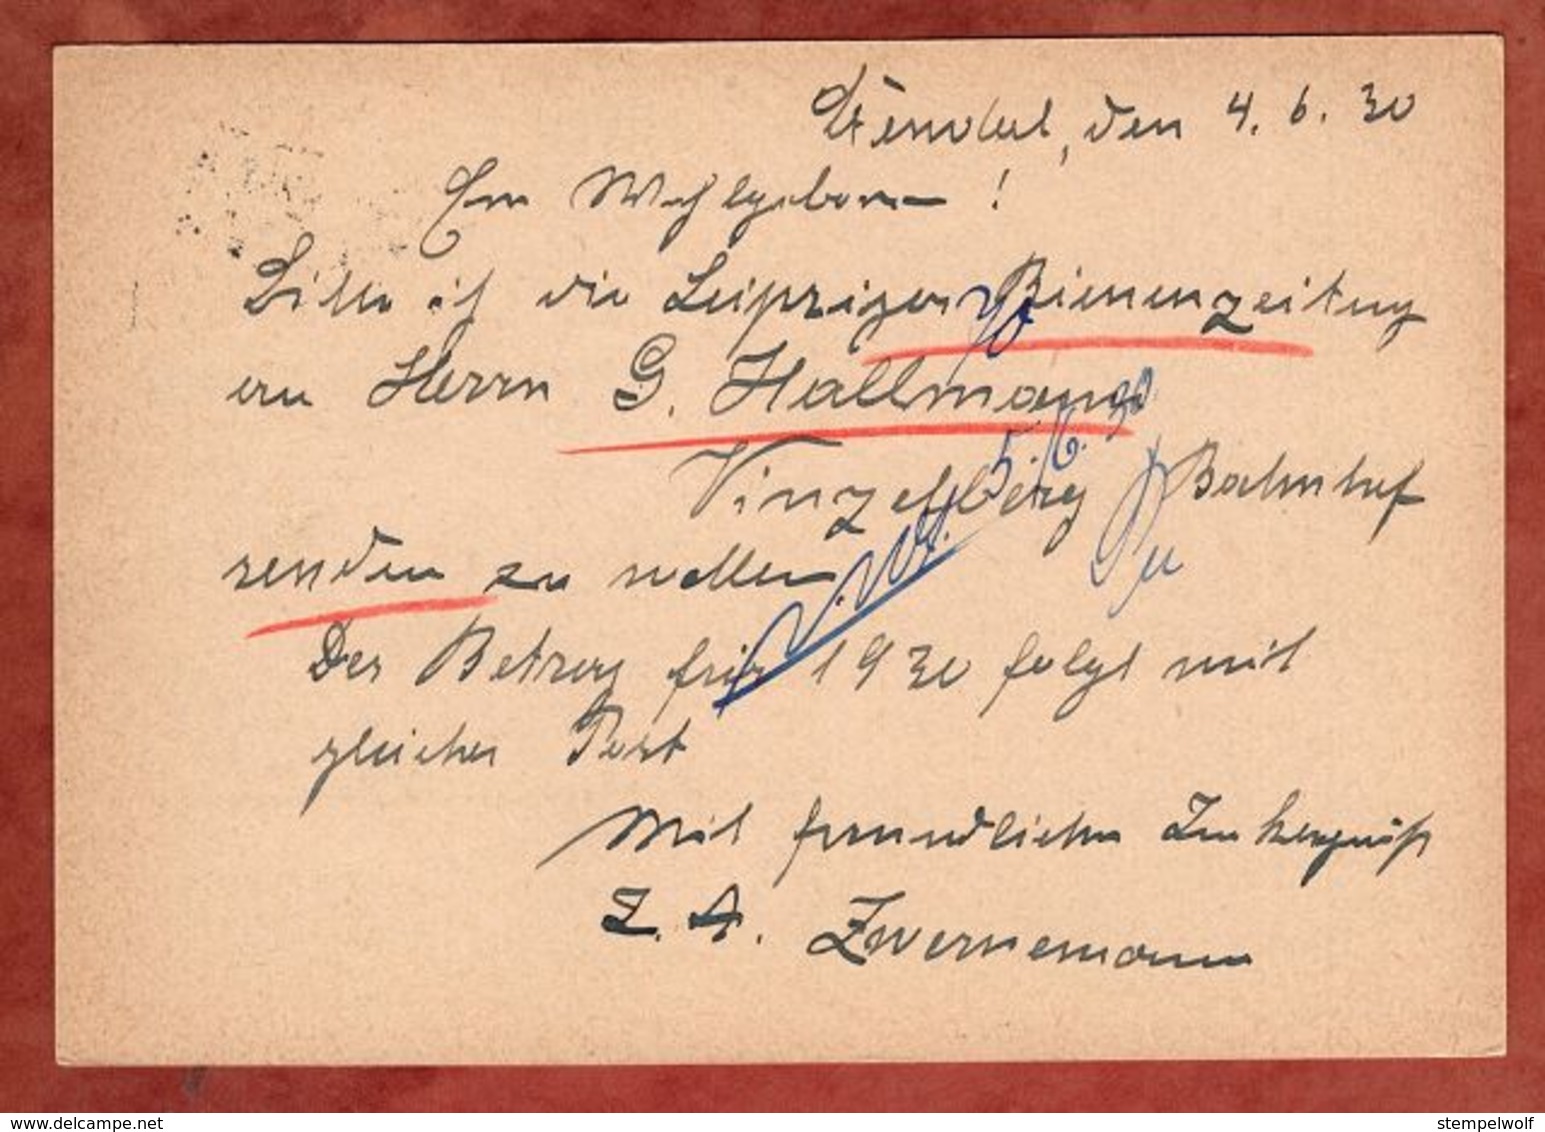 Stendal, den 4. 6. 30
Ew Wohlgeboren !
Bitte ich die Leipziger Bienenzeitung
an Herrn G. Hallmann
5. 6. 30
Vinzelberg Bahnhof
senden zu wollen
Der Betrag für 1930 folgt mit
gleicher Post
Mit freundlichen Imkergruß
Z. A. Zwernemann
www.delcampe.net
stempelwolf